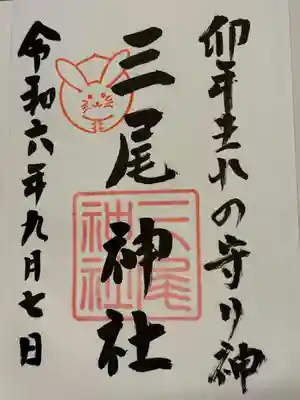 卯年生れの守り神
三尾神社
三尾
神社
令和六年九月七日